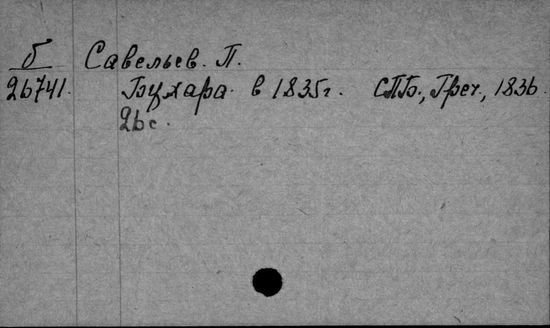 б Савельев. П.
26741. Бухара в 1835г. СПБ., Греч., 1836.
26 с.